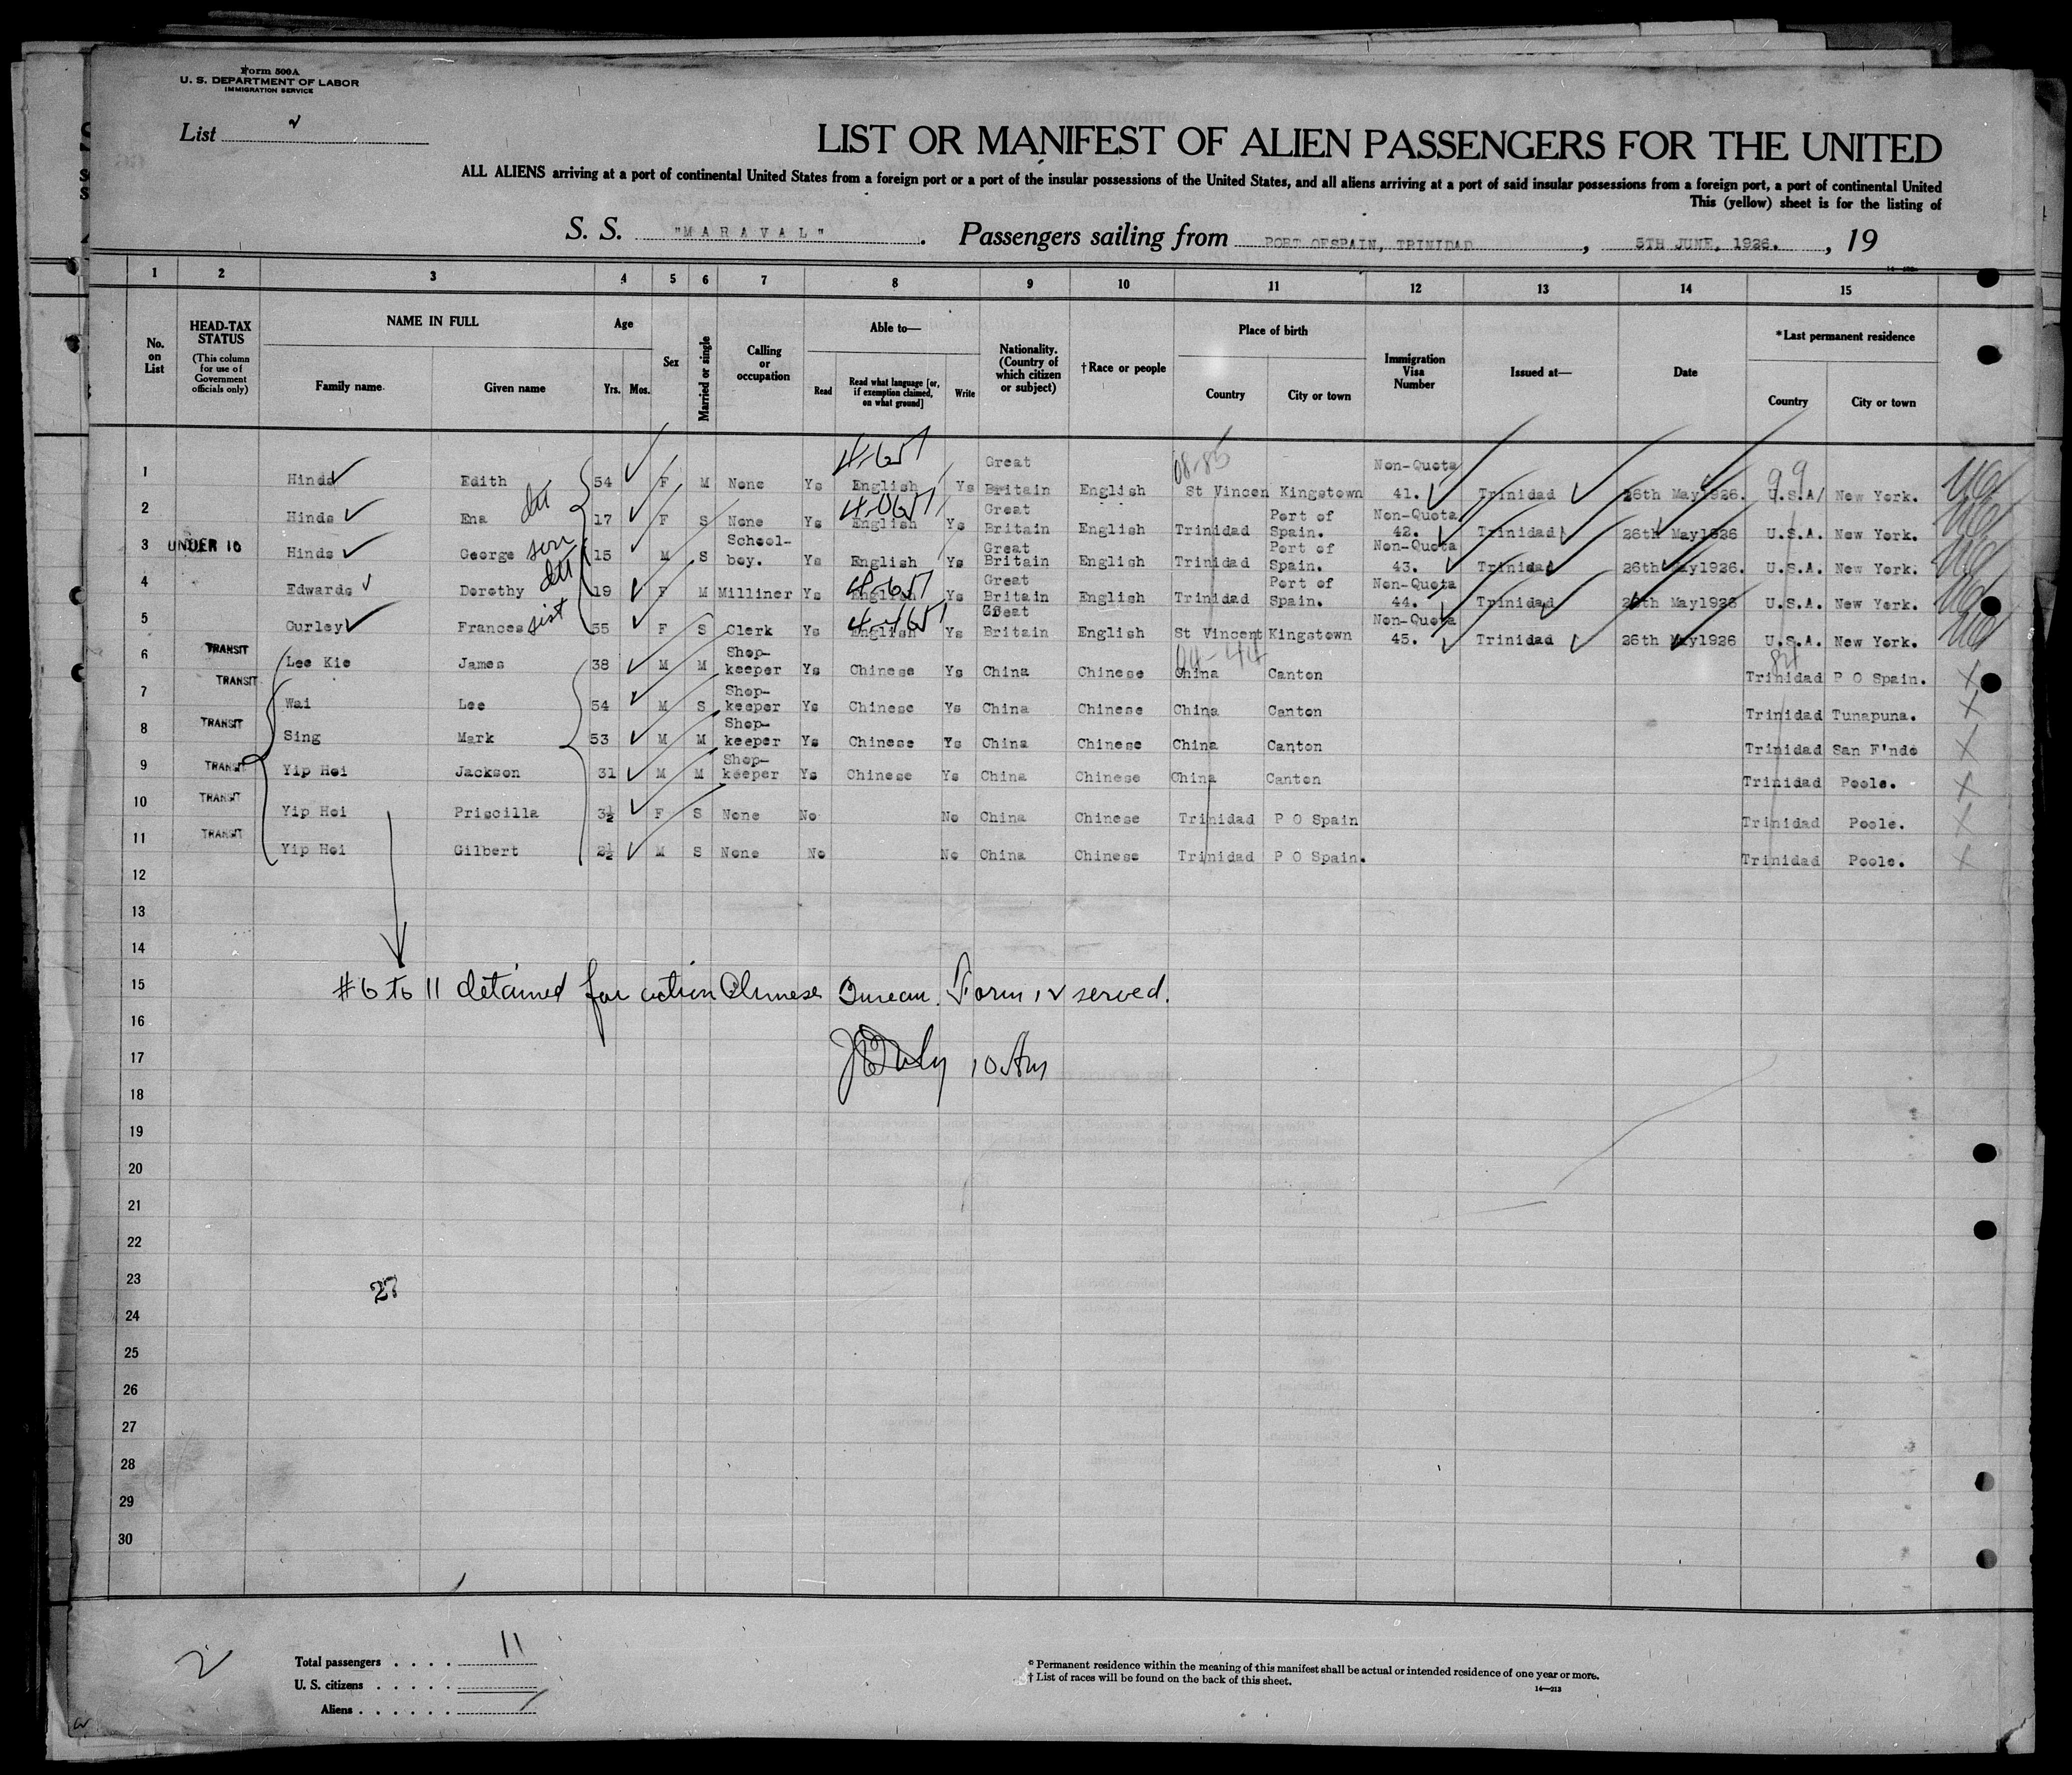 Form 500A
U. S. DEPARTMENT OF LABOR
IMMIGRATION SERVICE
List 2
LIST OR MANIFEST OF ALIEN PASSENGERS FOR THE UNITED
ALL ALIENS arriving at a port of continental United States from a foreign port or a port of the insular possessions of the United States, and all aliens arriving at a port of said insular possessions from a foreign port, a port of continental United
This (yellow) sheet is for the listing of
S. S. "MARAVAL". Passengers sailing from PORT OFSPAIN, TRINIDAD, 5TH JUNE, 1926., 19
1 2 3 4 5 6 7 8 9 10 11 12 13 14 15
No. on List
HEAD-TAX STATUS
(This column for use of Government officials only)
NAME IN FULL
Family name
Given name
Age
Yrs. Mos.
Sex
Married or single
Calling or occupation
Able to—
Read
Read what language [or, if exemption claimed, on what ground]
Write
Nationality. (Country of which citizen or subject)
†Race or people
Place of birth
Country
City or town
Immigration Visa Number
Issued at—
Date
*Last permanent residence
Country
City or town
1 Hinds Edith 54 F M None Ys English Ys Great Britain English St Vincen Kingstown Non-Quota 41. Trinidad 26th May1926. U.S.A/ New York.
2 Hinds Ena dtr 17 F S None Ys English Ys Great Britain English Trinidad Port of Spain. Non-Quota 42. Trinidad 26th May1926 U.S.A. New York.
3 UNDER 16 Hinds George son 15 M S School-boy. Ys English Ys Great Britain English Trinidad Port of Spain. Non-Quota 43. Trinidad 26th May1926. U.S.A. New York.
4 Edwards Dorothy dtr 19 F M Milliner Ys English Ys Great Britain English Trinidad Port of Spain. Non-Quota 44. Trinidad 26th May1926 U.S.A. New York.
5 Gurley Frances sist 55 F S Clerk Ys English Ys Great Britain English St Vincent Kingstown Non-Quota 45. Trinidad 26th May1926 U.S.A. New York.
6 TRANSIT Lee Kie James 38 M M Shop-keeper Ys Chinese Ys China Chinese China Canton Trinidad P O Spain. X
7 TRANSIT Wai Lee 54 M S Shop-keeper Ys Chinese Ys China Chinese China Canton Trinidad Tunapuna. X
8 TRANSIT Sing Mark 53 M M Shop-keeper Ys Chinese Ys China Chinese China Canton Trinidad San F'ndo X
9 TRANSIT Yip Hoi Jackson 31 M M Shop-keeper Ys Chinese Ys China Chinese China Canton Trinidad Poole. X
10 TRANSIT Yip Hoi Priscilla 3½ F S None No No China Chinese Trinidad P O Spain Trinidad Poole. X
11 TRANSIT Yip Hoi Gilbert 2½ M S None No No China Chinese Trinidad P O Spain. Trinidad Poole. X
12
13
14
15 #6 to 11 detained for action Chinese Bureau. Form 12 served.
16
17 10 Am
18
19
20
21
22
23
27
24
25
26
27
28
29
30
2
Total passengers . . . . 11
U. S. citizens . . . . .
Aliens . . . . . .
* Permanent residence within the meaning of this manifest shall be actual or intended residence of one year or more.
† List of races will be found on the back of this sheet.
14—213